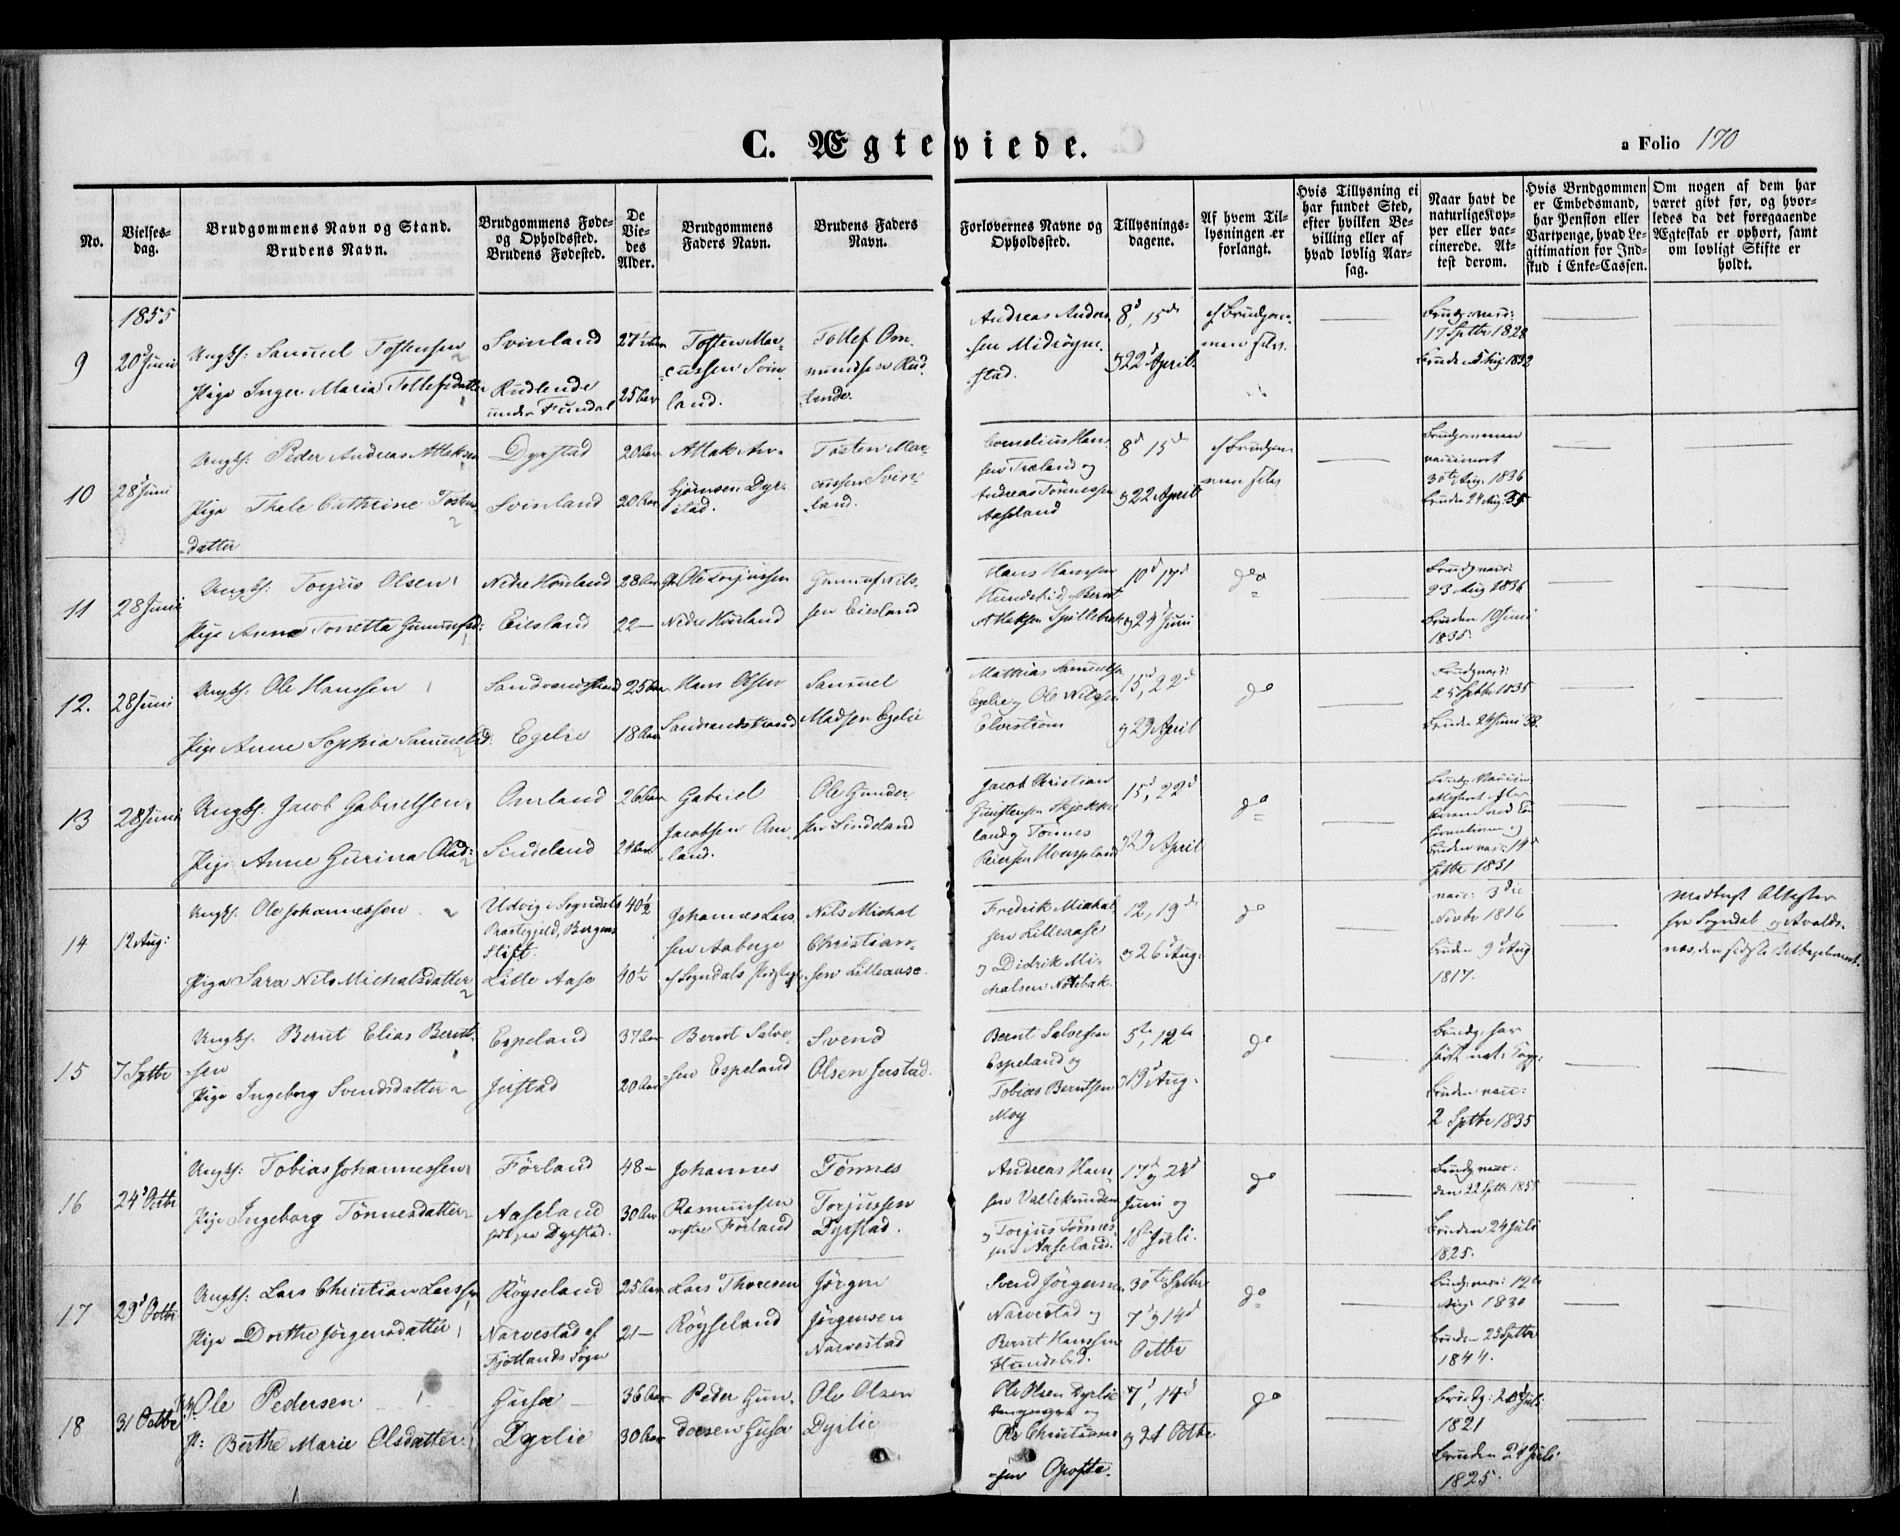 C. Ægteviede.
a Folio 170
No.
Vielses-
dag.
Brudgommens Navn og Stand.
Brudens Navn.
Brudgommens Føde-
og Opholdssted.
Brudens Fødested.
De
Vie-
des
Alder.
Brudgommens
Faders Navn.
Brudens Faders
Navn.
Forlovernes Navne og
Opholdssted.
Tillysnings-
dagene.
Af hvem Til-
lysningen er
forlangt.
Hvis Tillysning ei
har fundet Sted,
efter hvilken Be-
villing eller af
hvad lovlig Aar-
sag.
Naar havt de
naturlige Kop-
per eller vac-
cinerede. At-
test derom.
Hvis Brudgommen
er Embedsmand,
har Pension eller
Vartpenge, hvad Le-
gitimation for Ind-
skud i Enke-Cassen.
Om nogen af dem har
været givt før, og hvor-
ledes da det foregaaende
Ægteskab er ophørt, samt
om lovligt Skifte er
holdt.
1855
9
20 Juni
Ungk: Samuel Tostensen
Pige Inger Maria Tollefsdatter
Svinland
Rudlende
under Fundal
25 Aar
Tosten Mar-
cussen Svin-
land.
Tollef Om-
mundsen Rud-
lende.
Andreas Ander-
sen Midtøgne-
stad.
8d, 15de
og 22 April
Brudg: vac:
17 Sptbr 1828
10
28 Juni
Ungk: Peder Andreas Atlaksen
Pige Thele Cathrine Tosten-
datter
Dyrstad
Svinland
20 Aar
20 Aar
Atlak An-
bjørnsen Dyr-
stad.
Tosten Mar-
cussen Svin-
land.
Cornelius Han-
sen Træland og
Andreas Tønnessen
Aaseland
8d 15de
og 22 April
Brudgommen
vaccineret
30te Aug. 1836
Bruden 24 Aug: 35
11
28 Juni
Ungk: Torjus Olsen
Pige Anne Tonetta Gunnufsd:
Nedre
Eiesland
28 Aar
22 —
Ole Torjussen
Nedre
Gunnuf Nils-
sen Eiesland
Hans Hanssen
Hundebid og Bernt
Atlaksen
10d 17d
og 24 Juni
do
Brudg vac:
23 Aug 1836
Bruden 19 Juni
1835.
12.
28 Juni
Ungk: Ole Hanssen
Pige Anne Sophia Samuelsd:
Sandvandstrand
Egelie
25 Aar
18 Aar
Hans Olsen
Sandvandstrand
Samuel
Madsen Egelie
Mathias Samuelsen
Egelie og Ole Nilsen
Elvestrøm
15d, 22d
og 29 April
do
Brudg vac:
25 Sptbr 1835
Bruden 24 Juni 38.
13
28 Juni
Ungk. Jacob Gabrielsen
Pige Anne Gurina Olsd:
Omland
Sindeland
26 Aar
24 Aar
Gabriel
Jacobsen Om-
land.
Ole Gunder-
sen Sindeland
Jacob Christian
land og Tønnes
15d, 22d
og 29 April
do
Bruden vac: 14d
Sptbr 1831
14
12 Aug:
Ungk. Ole Johannessen
Pige Sara Nils Michalsdatter
Udvig i Sogndals
Præstegjeld, Bergens
Stift.
Lille Aase
40½
40½
Johannes Lars-
sen Aaberge
af Sogndals
Nils Michal
Christian-
sen Lilleaase
Fredrik Michal-
sen Lilleaase
og Didrik Mi-
chalsen
12, 19de
og 26 Aug:
do
vac: 3die
Novbr 1816
Bruden 9d Aug
1817.
Medbragt Attester
fra Sogndal og Avalds-
nes, den sidste
15
7 Sptbr
Ungk. Bernt Elias Bernt-
sen
Pige Ingeborg Svendsdatter
Espeland
Jerstad
37 Aar
20 Aar
Bernt Salve-
sen Espeland
Svend
Olsen Jerstad
Bernt Salvesen
Espeland og
Tobias Berntsen
Moy
5te, 12te
og 19d Aug.
do
Brudg: har
havt nat: Kop:
Bruden vac:
2 Sptbr 1835
16
24d Octbr
Ungk: Tobias Johannessen
Pige Ingeborg Tønnesdatter
Førland
Aaseland
født paa Dyrstad.
48 —
30 Aar
Johannes
Rasmussen
Førland
Tønnes
Torjussen
Dyrstad.
Andreas Han-
sen
og Torjus Tønnes-
sen Aaseland.
17d og 24d
Juni og
1ste Juli.
do
Brudg vac:
Bruden 24 Juli
1825.
17
29d Octbr
Ungk: Lars Christian Larssen
Pige Dorthe Jørgensdatter
Røyseland
Narvestad af
Fjotlands Sogn
25 Aar
21 —
Lars Thoresen
Røyseland
Jørgen
Jørgensen
Narvestad
Svend Jørgensen
Narvestad og
Bernt Hanssen
Hundebid.
30te Sptbr
7d og 14d
Octbr
do
Brudg vac: 12te
Aug: 1830
Bruden 25 Sptbr
1844.
18
31 Octbr
Ole Pedersen
P: Berthe Marie Olsdatter
Gusa
Dyrlie
36 Aar
30 Aar
Peder Gun-
dersen Gusa
Ole Olsen
Dyrlie
Ole Olsen Dyrlie
og
Christians-
sen
7d, 14d
og 21 Octbr
do
Brudg: 20d Juli
1821
Bruden 24 Juli
1825.